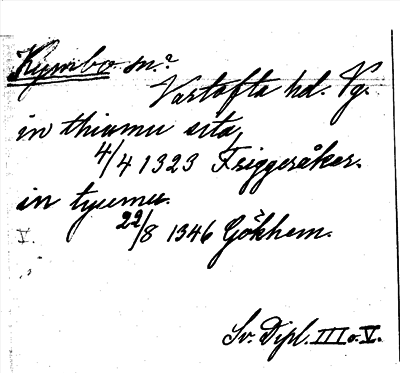 Kymbo sn.?
Vartofta hd. Vg.
in thiumu sita
4/4 1323 Friggeråker.
in tyumu.
22/8 1346 Gökhem.
V.
Sv. Dipl. III o. V.